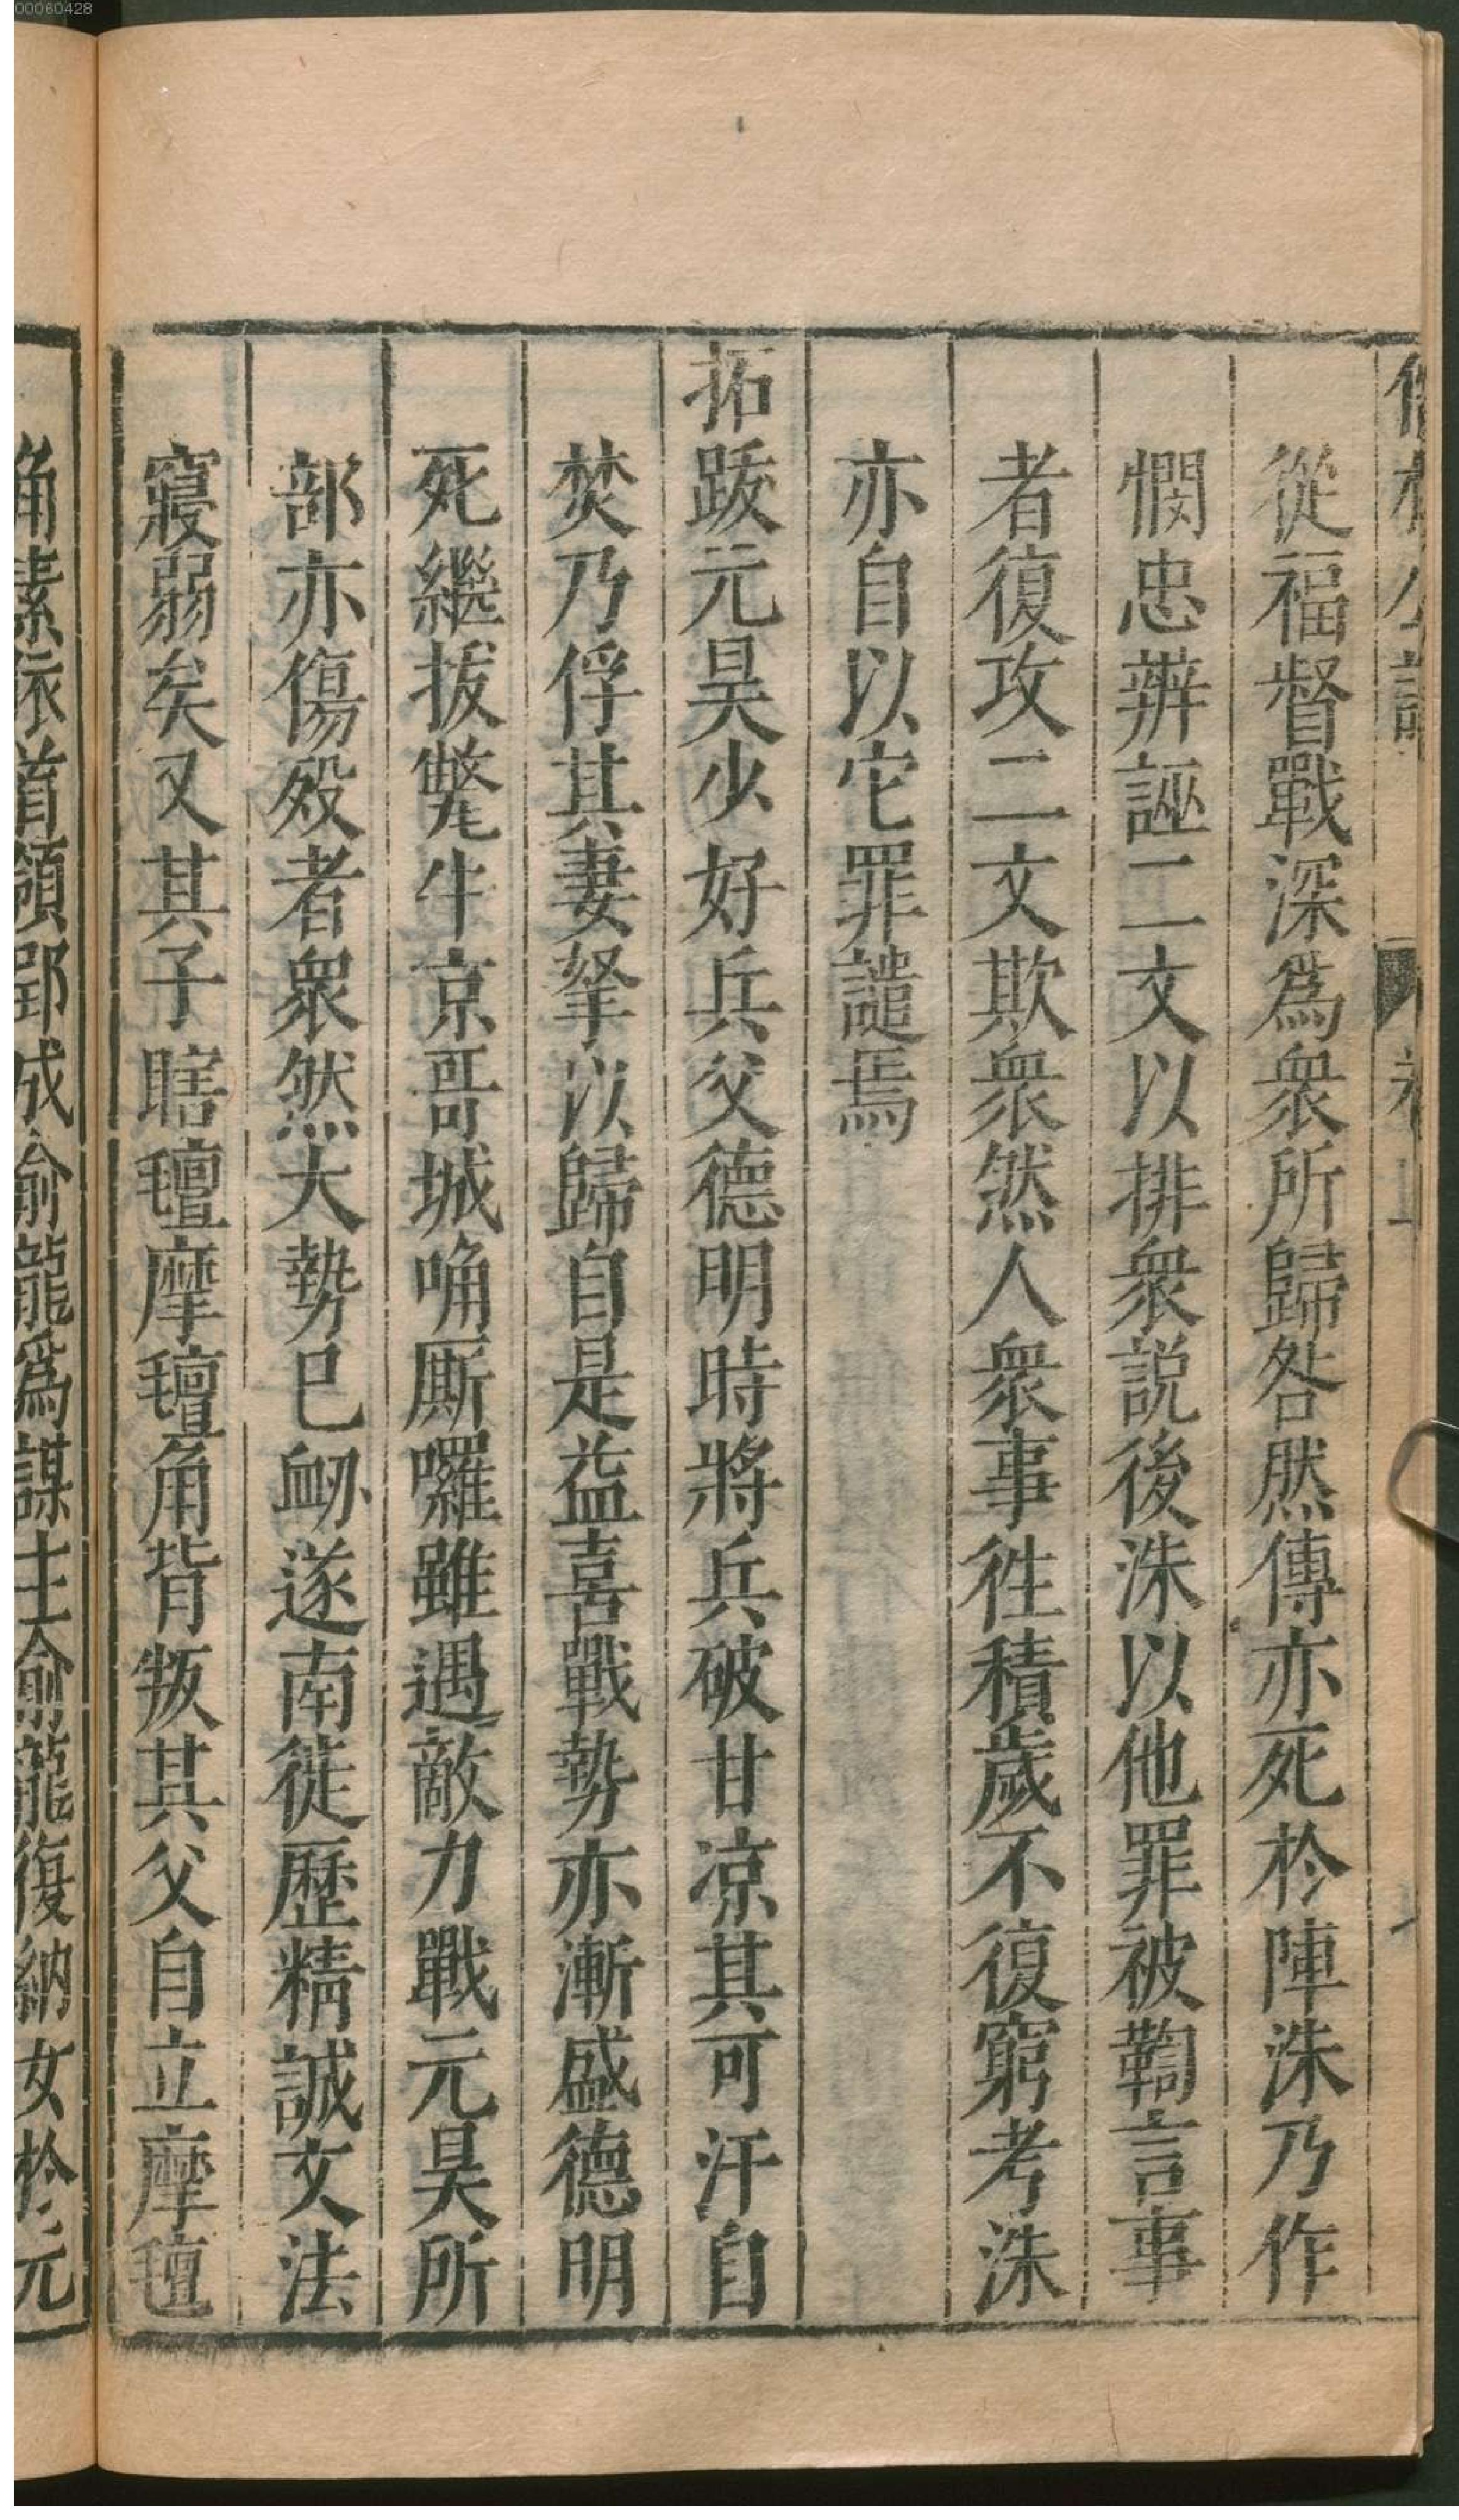 00060428
從福督戰深爲衆所歸咎然傳亦死於陣洙乃作
憫忠辨誣二文以排衆説後洙以他罪被鞫言事
者復攻二文欺衆然人衆事徃積歲不復窮考洙
亦自以它罪譴焉
拓跋元昊少好兵父德明時將兵破甘凉其可汗自
焚乃俘其妻孥以歸自是益喜戰勢亦漸盛德明
死繼拔氂牛京哥城唃厮囉雖遇敵力戰元昊所
部亦傷殺者衆然大勢已衂遂南徙歷精誠文法
寖弱矣又其子瞎氊摩氊角背叛其父自立摩氊
角素依首領郢成俞龍爲謀主俞龍復納女於元